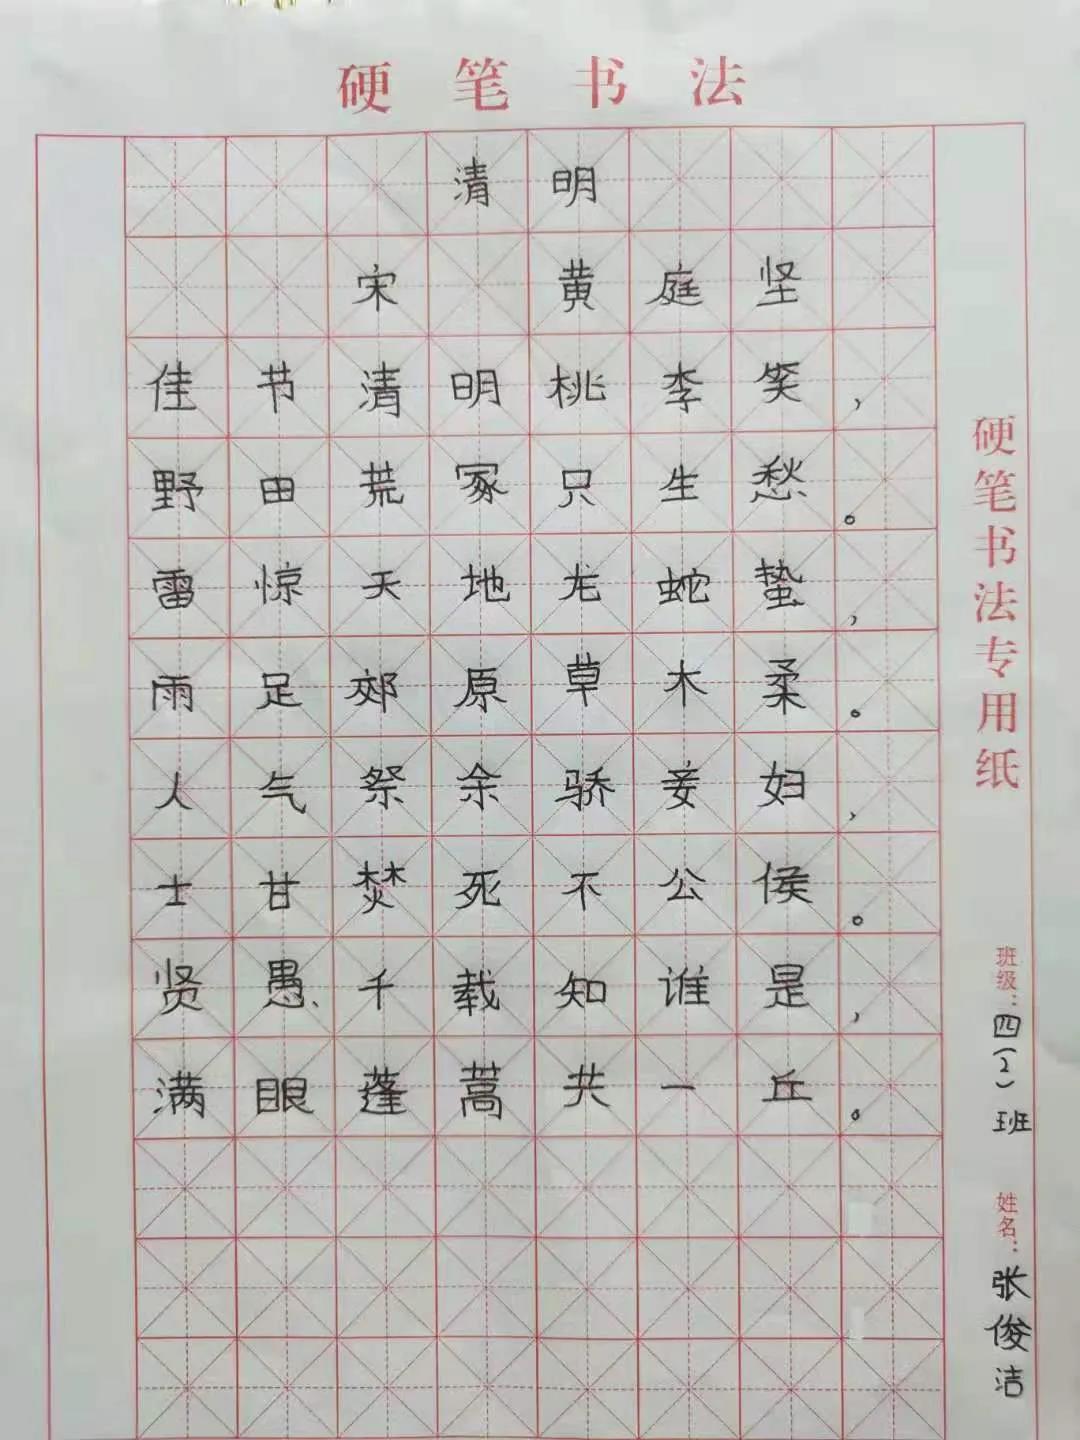 硬笔书法
清明
宋 黄庭坚
佳节清明桃李笑，
野田荒冢只生愁。
雷惊天地龙蛇蛰，
雨足郊原草木柔。
人气祭余骄妾妇，
士甘焚死不公侯。
贤愚千载知谁是，
满眼蓬蒿共一丘。
硬笔书法专用纸
班级：四（2）班
姓名：张俊洁